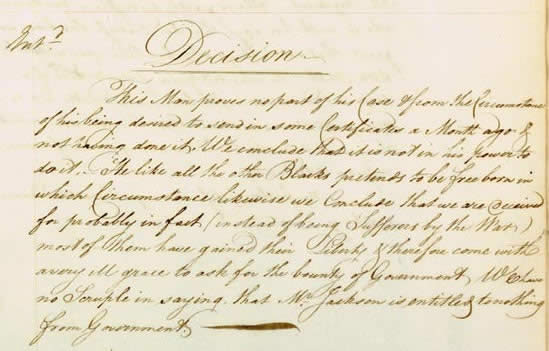 Ent.d
Decision
This Man proves no part of his Case & from the Circumstance
of his being desired to send in some Certificates a Month ago &
not having done it, We conclude that it is not in his power to
do it. He like all the other Blacks pretends to be free born in
which Circumstance likewise we Conclude that we are deceived
for probably in fact (instead of being Sufferers by the War)
most of them have gained their Liberty & therefore come with
a very ill grace to ask for the bounty of Government, We have
no Scruple in saying that Mr. Jackson is entitled to nothing
from Government.